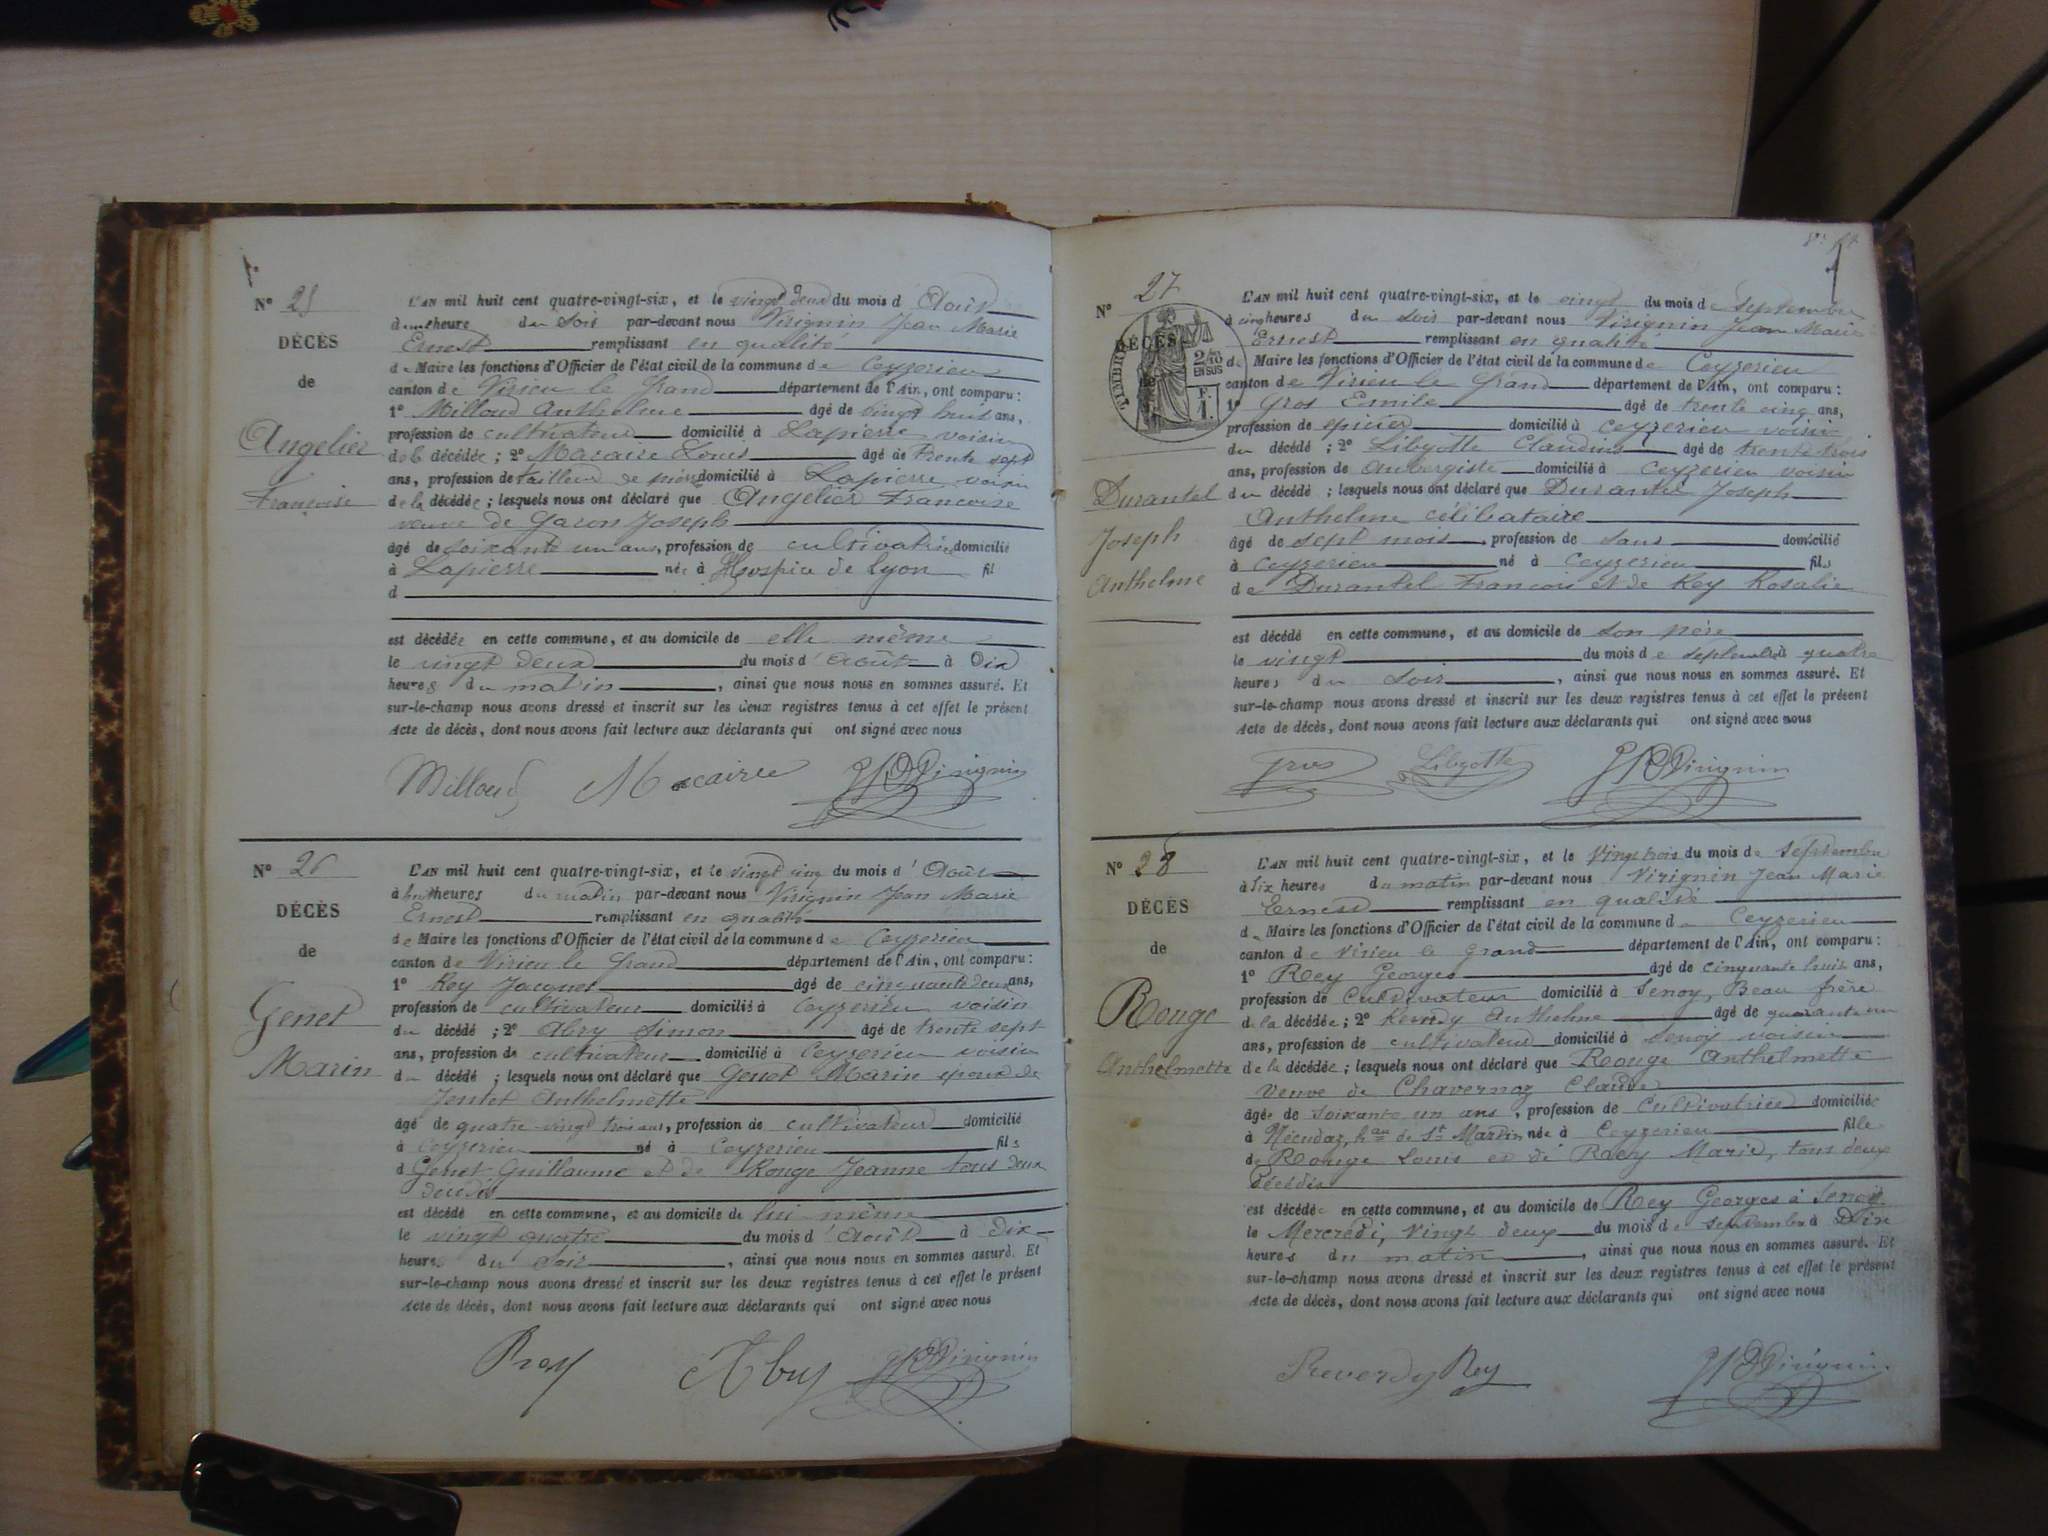 N° 25
DÉCÈS
de
Angelier
Françoise
L'AN mil huit cent quatre-vingt-six, et le vingt deux du mois d'Août
à une heure du soir par-devant nous Virignin Jean Marie
Ernest remplissant en qualité
de Maire les fonctions d'Officier de l'état civil de la commune de Ceyzerieu
canton de Virieu le Grand département de l'Ain, ont comparu :
1° Milloud Anthelme âgé de vingt huit ans,
profession de cultivateur domicilié à Lapierre voisin
de la décédée ; 2° Macaire Louis âgé de trente sept
ans, profession de tailleur de domicilié à Lapierre voisin
de la décédée ; lesquels nous ont déclaré que Angelier Francoise
veuve de Garon Joseph
âgé de soixante un ans, profession de cultivatrice domicilié
à Lapierre née à Hospice de Lyon fil
d
est décédée en cette commune, et au domicile de elle même
le vingt deux du mois d'août à Dix
heures du matin, ainsi que nous nous en sommes assuré. Et
sur-le-champ nous avons dressé et inscrit sur les deux registres tenus à cet effet le présent
Acte de décès, dont nous avons fait lecture aux déclarants qui ont signé avec nous
Milloud Macaire Virignin
N° 26
DÉCÈS
de
Genet
Marin
L'AN mil huit cent quatre-vingt-six, et le vingt cinq du mois d'Août
à huit heures du matin par-devant nous Virignin Jean Marie
Ernest remplissant en qualité
de Maire les fonctions d'Officier de l'état civil de la commune de Ceyzerieu
canton de Virieu le Grand département de l'Ain, ont comparu :
1° Rey Jacques âgé de cinquante deux ans,
profession de cultivateur domicilié à Ceyzerieu voisin
du décédé ; 2° Abry Simon âgé de trente sept
ans, profession de cultivateur domicilié à Ceyzerieu voisin
du décédé ; lesquels nous ont déclaré que Genet Marin epoux de
Anthelmette
âgé de quatre vingt trois ans, profession de cultivateur domicilié
à Ceyzerieu né à Ceyzerieu fils
d Genet Guillaume et de Rouge Jeanne tous deux
décédés
est décédé en cette commune, et au domicile de lui même
le vingt quatre du mois d'Août à dix
heures du soir, ainsi que nous nous en sommes assuré. Et
sur-le-champ nous avons dressé et inscrit sur les deux registres tenus à cet effet le présent
Acte de décès, dont nous avons fait lecture aux déclarants qui ont signé avec nous
Rey Abry Virignin
N° 27
DÉCÈS
de
TIMBRE
2/10
EN SUS
F.
1.
Durantel
Joseph
Anthelme
L'AN mil huit cent quatre-vingt-six, et le vingt du mois de septembre
à cinq heures du soir par-devant nous Virignin Jean Marie
Ernest remplissant en qualité
de Maire les fonctions d'Officier de l'état civil de la commune de Ceyzerieu
canton de Virieu le Grand département de l'Ain, ont comparu :
1° Gros Emile âgé de trente cinq ans,
profession de epicier domicilié à Ceyzerieu voisin
du décédé ; 2° Libyotte Claudius âgé de trente trois
ans, profession de Aubergiste domicilié à Ceyzerieu voisin
du décédé ; lesquels nous ont déclaré que Durantel Joseph
Anthelme célibataire
âgé de sept mois, profession de sans domicilié
à Ceyzerieu né à Ceyzerieu fils
de Durantel Francois et de Rey Rosalie
est décédé en cette commune, et au domicile de son père
le vingt du mois de septembre à quatre
heures du soir, ainsi que nous nous en sommes assuré. Et
sur-le-champ nous avons dressé et inscrit sur les deux registres tenus à cet effet le présent
Acte de décès, dont nous avons fait lecture aux déclarants qui ont signé avec nous
Gros Libyotte Virignin
N° 28
DÉCÈS
de
Rouge
Anthelmette
L'AN mil huit cent quatre-vingt-six, et le vingt trois du mois de septembre
à six heures du matin par-devant nous Virignin Jean Marie
Ernest remplissant en qualité
de Maire les fonctions d'Officier de l'état civil de la commune de Ceyzerieu
canton de Virieu le Grand département de l'Ain, ont comparu :
1° Rey Georges âgé de cinquante huit ans,
profession de Cultivateur domicilié à Senoy, Beau frère
de la décédée ; 2° Anthelme âgé de quarante un
ans, profession de cultivateur domicilié à Senoy voisin
de la décédée ; lesquels nous ont déclaré que Rouge Anthelmette
Veuve de Chavernoz Claude
âgée de soixante un ans, profession de Cultivatrice domiciliée
à Mécudaz, hau de St Martin née à Ceyzerieu fille
de Rouge Louis et de Rey Marie, tous deux
Décédés
est décédée en cette commune, et au domicile de Rey Georges à Senoy
le Mercredi, vingt deux du mois de septembre à Dix
heures du matin, ainsi que nous nous en sommes assuré. Et
sur-le-champ nous avons dressé et inscrit sur les deux registres tenus à cet effet le présent
Acte de décès, dont nous avons fait lecture aux déclarants qui ont signé avec nous
Reverdy Rey Virignin